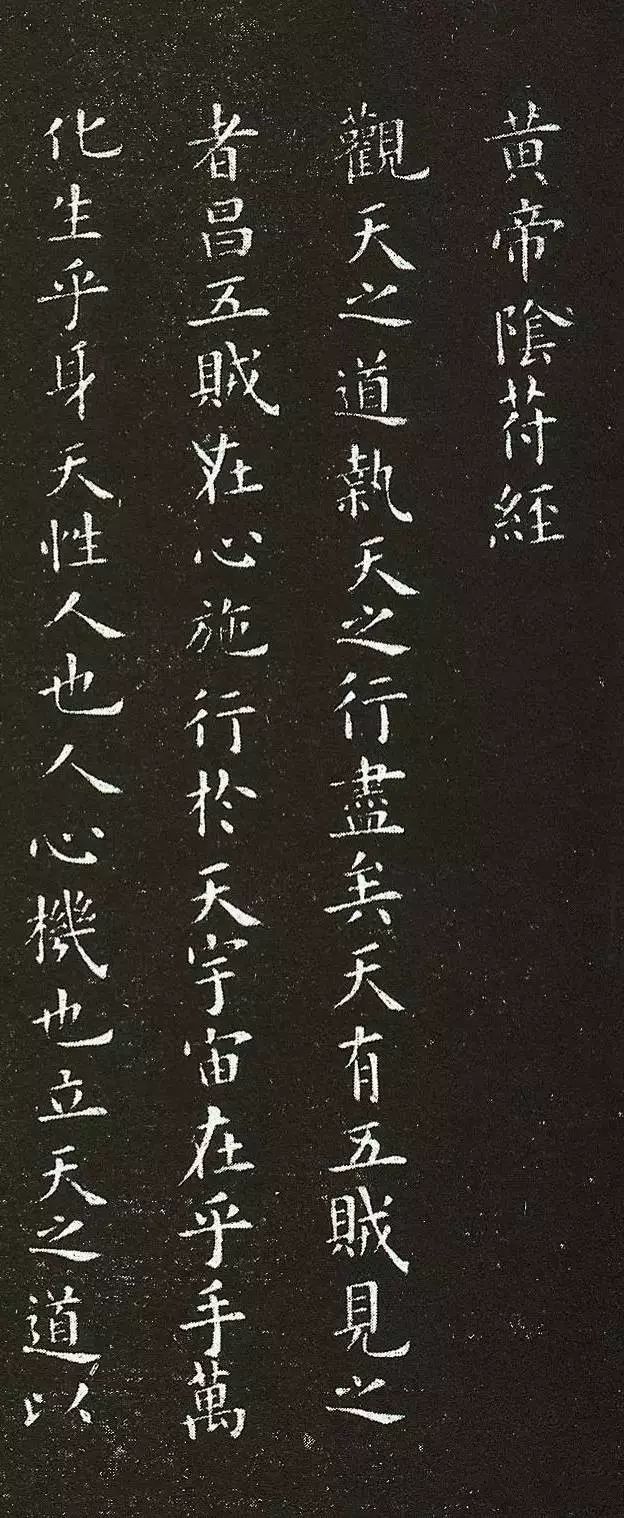 黄帝陰苻經
觀天之道執天之行盡矣天有五賊見之
者昌五賊在心施行於天宇宙在乎手萬
化生乎身天性人也人心機也立天之道以